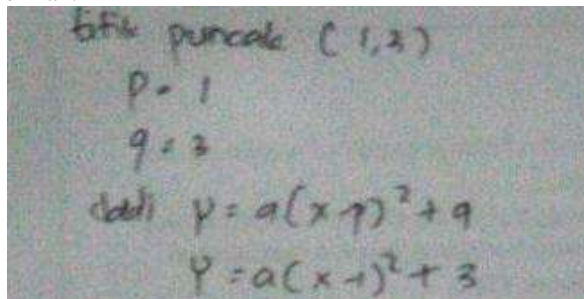 titik puncak (1,3)
p = 1
q = 3
Jadi y = a(x-p)² + q
y = a(x-1)² + 3